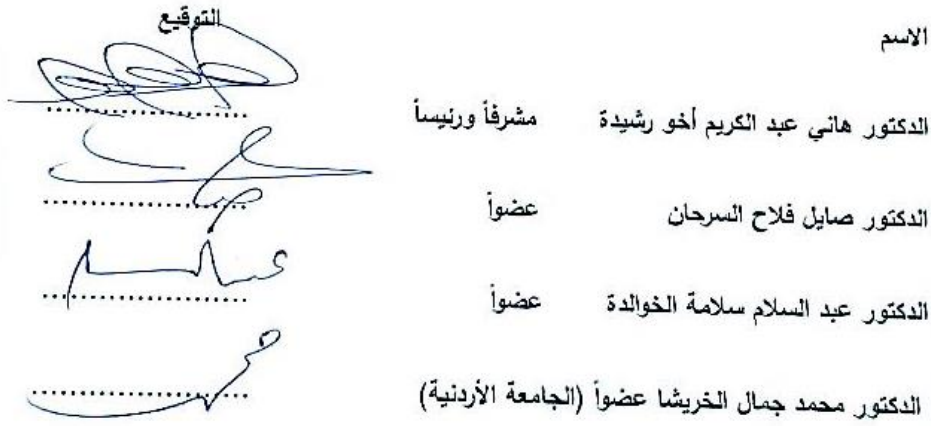 الاسم التوقيع
الدكتور هاني عبد الكريم أخو رشيدة مشرفاً ورئيساً ....................
الدكتور صايل فلاح السرحان عضواً ....................
الدكتور عبد السلام سلامة الخوالدة عضواً ....................
الدكتور محمد جمال الخريشا عضواً (الجامعة الأردنية) ....................